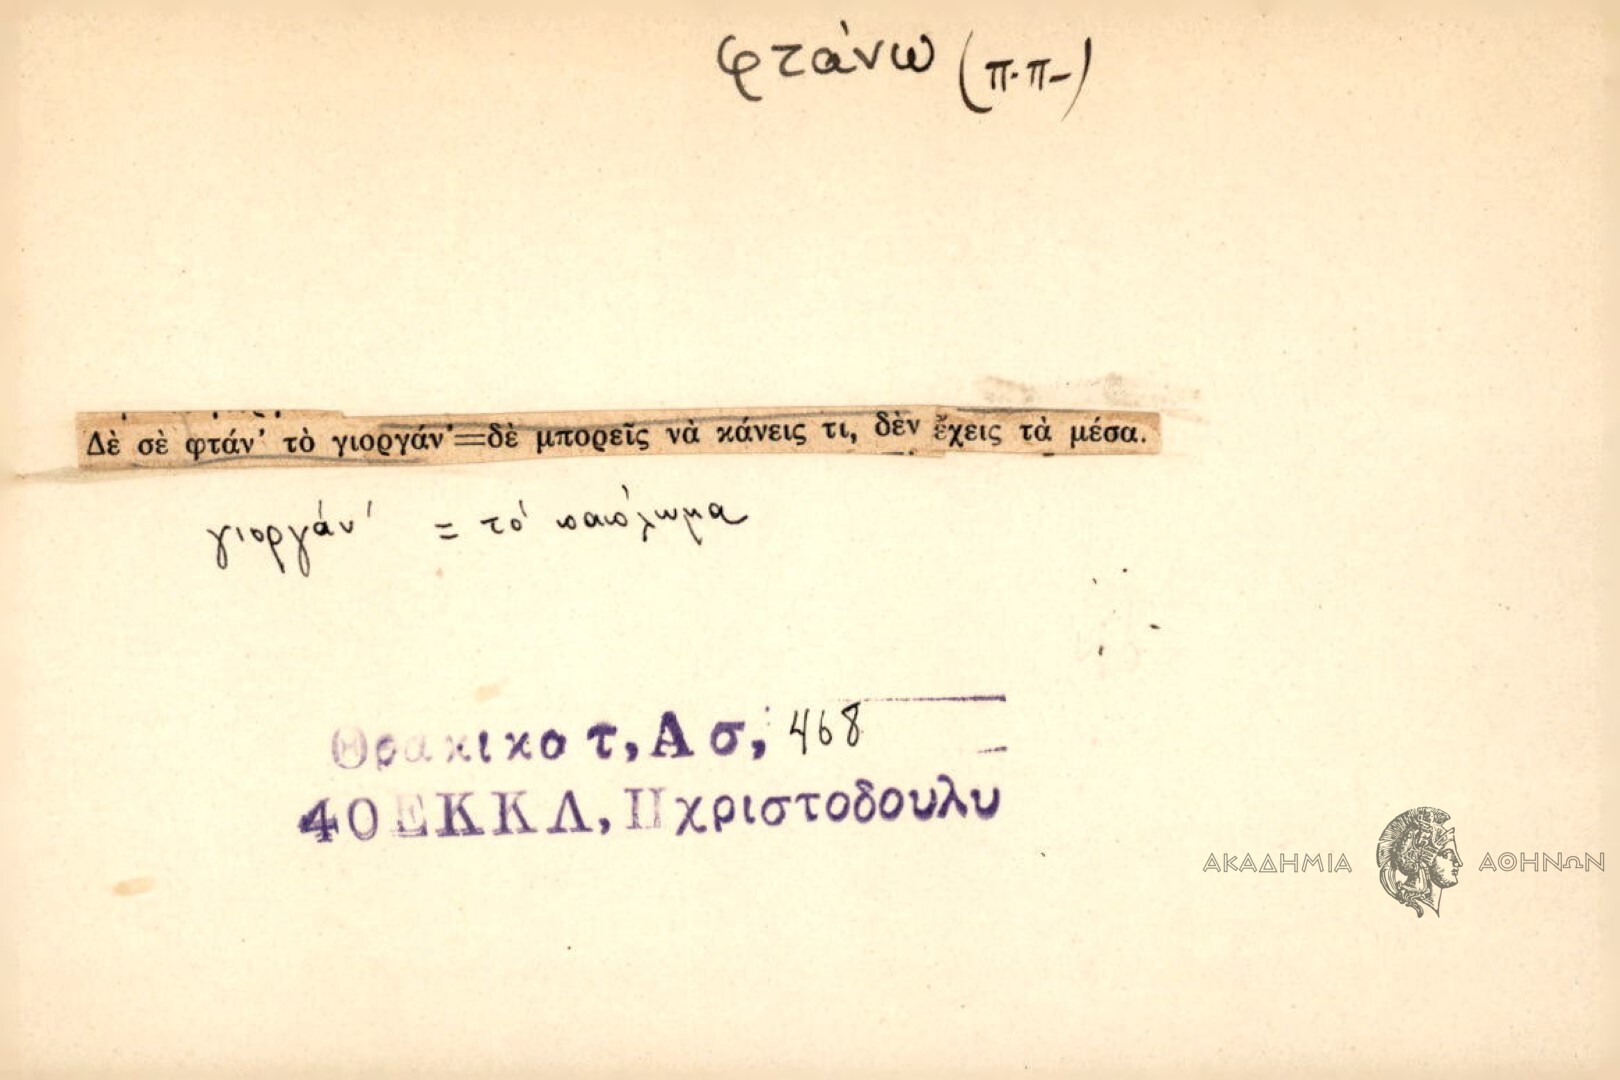 φτάνω (π.π-)
Δὲ σὲ φτάν' τὸ γιοργάν'=δὲ μπορεῖς νὰ κάνεις τι, δὲν ἔχεις τὰ μέσα.
γιοργάν' = τό παπλωμα
Θρακικο τ, Α σ, 468
40 ΕΚΚΛ, Πχριστοδουλυ
ΑΚΑΔΗΜΙΑ ΑΘΗΝΩΝ